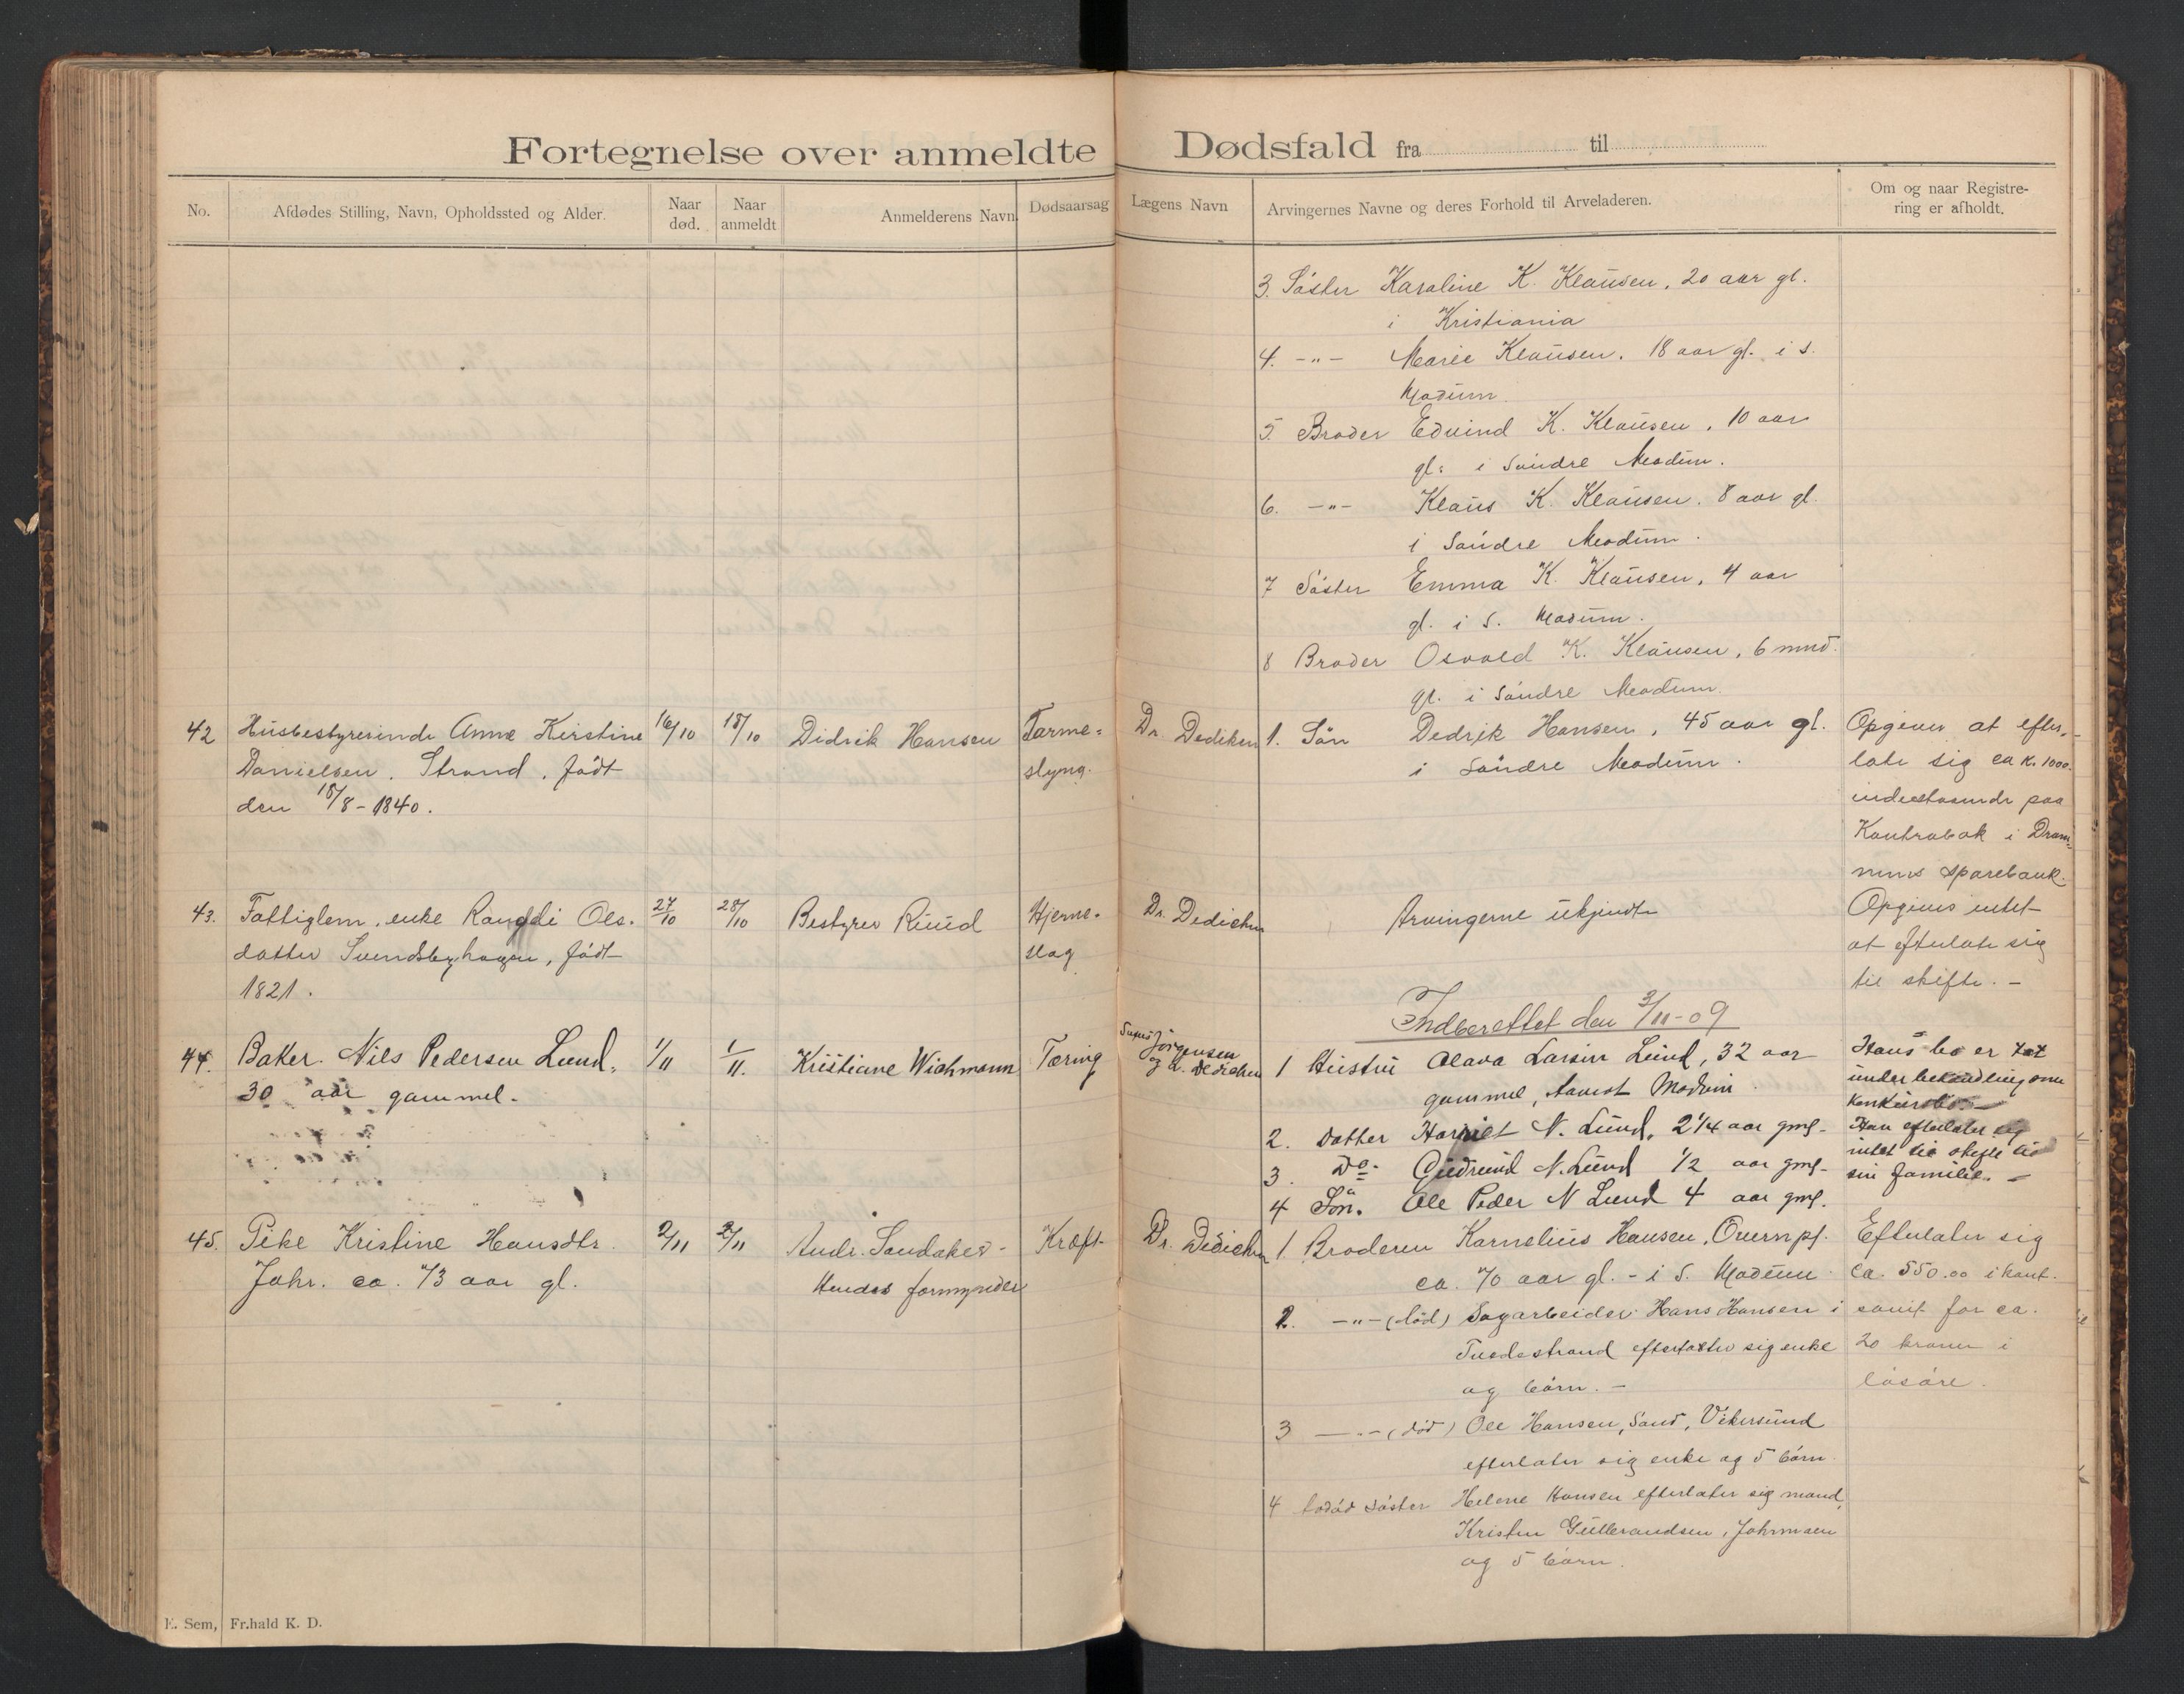 Fortegnelse over anmeldte Dødsfald fra til
No.
Afdødes Stilling, Navn, Opholdssted og Alder.
Naar død.
Naar anmeldt
Anmelderens Navn.
Dødsaarsag
Lægens Navn
Arvingernes Navne og deres Forhold til Arveladeren.
Om og naar Registre-
ring er afholdt.
3. Søster Karoline K. Klausen, 20 aar gl.
i Kristiania
4. -"- Marie Klausen, 18 aar gl. i S.
Modum.
5. Broder Edvind K. Klausen, 10 aar
gl. i Søndre Modum.
6. -"- Klaus K. Klausen, 8 aar gl.
i Søndre Modum.
7 Søster Emma K. Klausen, 4 aar
gl. i S. Modum.
8 Broder Osvald K. Klausen, 6 mnd.
gl. i Søndre Modum.
42 Husbestyrerinde Anne Kirstine
Danielsen, Strand, født
den 18/8-1840.
16/10
18/10
Didrik Hansen
Tarme-
slyng.
Dr. Dedichen
1. Søn Dedrik Hansen, 45 aar gl.
i Søndre Modum.
Opgives at efter-
late sig ca k. 1000.
indestaaende paa
Kontrabok i Dram-
mens Sparebank.
43. Fattiglem, enke Rangdi Ols-
datter Svendsbyhagen, født
1821.
27/10
28/10
Bestyrer Ruud
Hjerne-
slag
Dr. Dedichen
Arvingerne ukjendte
Opgives intet
at efterlate sig
til skifte. -
Indberettet den 3/11-09
44. Baker Nils Pedersen Lund,
30 aar gammel.
1/11
1/11.
Kristiane Wichmann
Tæring
Jørgensen
og Dr. Dedichen
1 Hustru Olava Larsen Lund, 32 aar
gammel, Aamot Modum.
2. Datter Harriet N. Lund, 2 1/4 aar gml.
3. Do. Gudrund N. Lund 1/2 aar gml.
4 Søn. Ole Peder N Lund 4 aar gml.
Hans bo er tat
under behandling som
konkursbo. -
Han efterlater sig
intet til skifte til
sin familie. -
45. Pike Kristine Hansdtr.
Johr. ca. 73 aar gl.
2/11
2/11
Andr. Sandaker -
Hendes formynder
Kræft
Dr. Dedichen
1 Broderen Karnelius Hansen, Overn pl.
ca. 70 aar gl. - i S. Modum.
2. -"- (død) Sagarbeider Hans Hansen i
Tvedestrand efterlater sig enke
og børn. -
3 -"- (død) Ole Hansen, Sand, Vikersund
efterlater sig enke og 5 børn.
4 Avdød søster Helene Hansen efterlater sig mand,
Kristen Gulbrandsen, Johrmoen
og 5 børn.
Efterlater sig
ca. 550.00 i kont.
samt for ca.
20 kroner i
løsøre.
E. Sem, Fr.hald K. D.